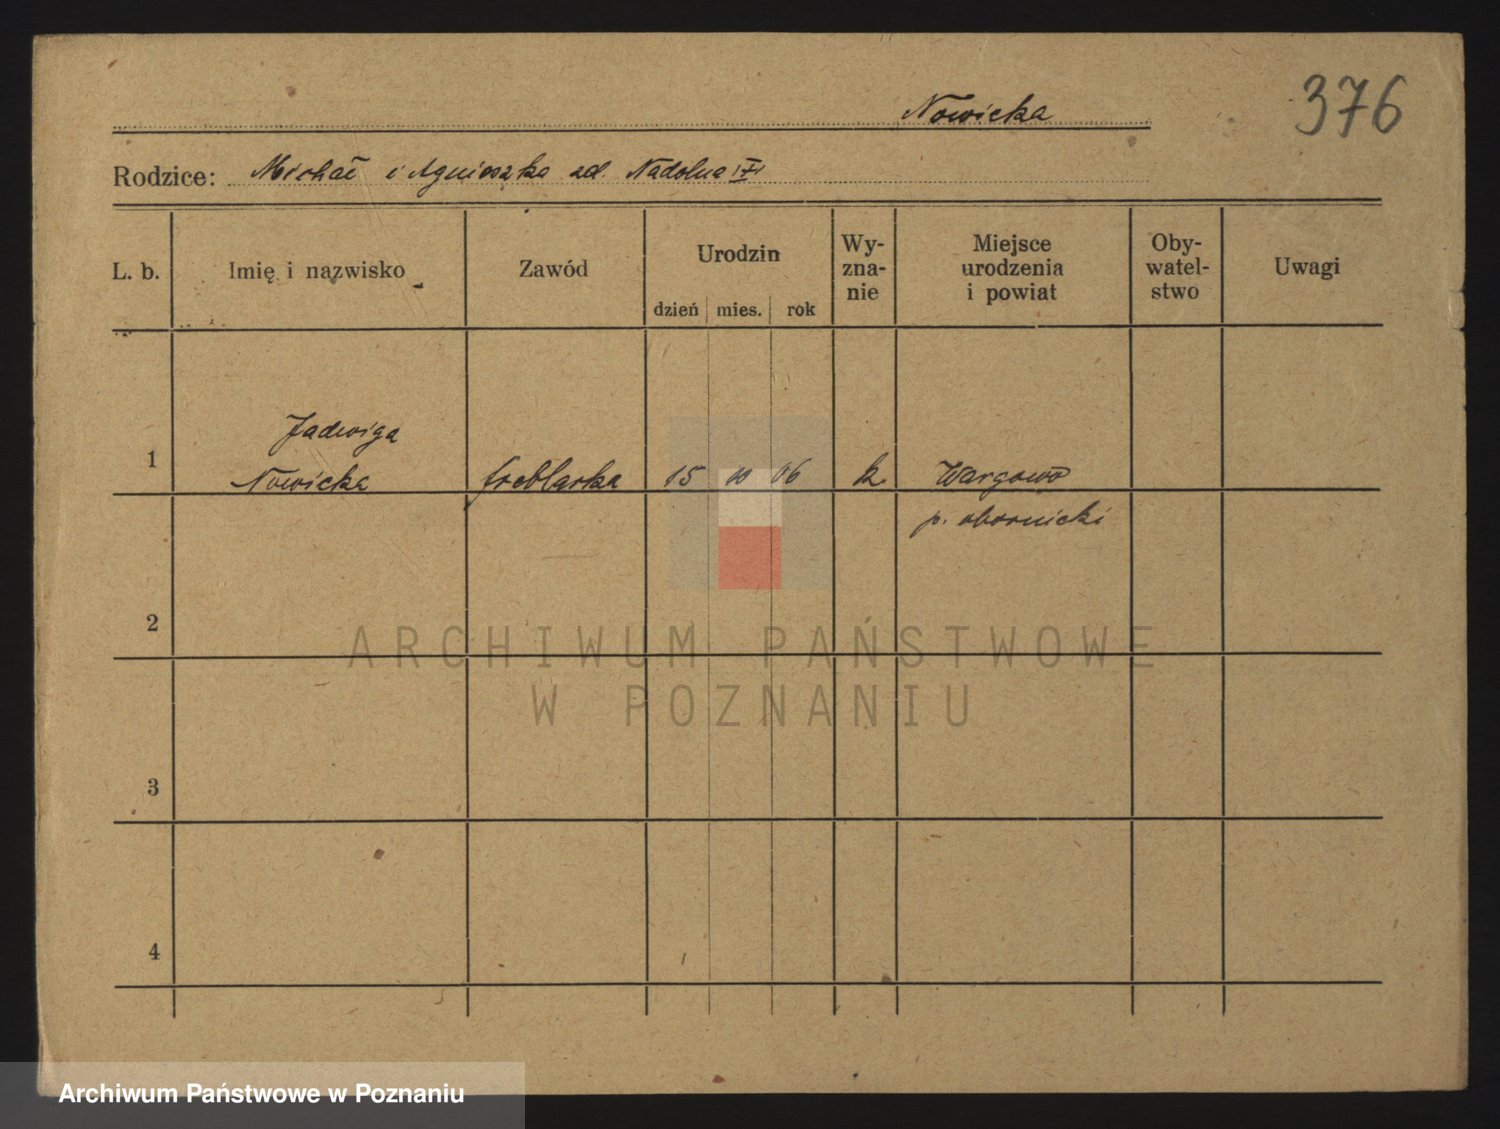 376
Nowicka
Rodzice: Michał i Agnieszka zd. Nadolna
L. b. Imię i nazwisko Zawód Urodzin dzień mies. rok Wy-zna-nie Miejsce urodzenia i powiat Oby-watel-stwo Uwagi
Jadwiga
1 Nowicka freblarka 15 10 06 k. Wargowo
p. obornicki
2
ARCHIWUM PAŃSTWOWE
W POZNANIU
3
4
Archiwum Państwowe w Poznaniu